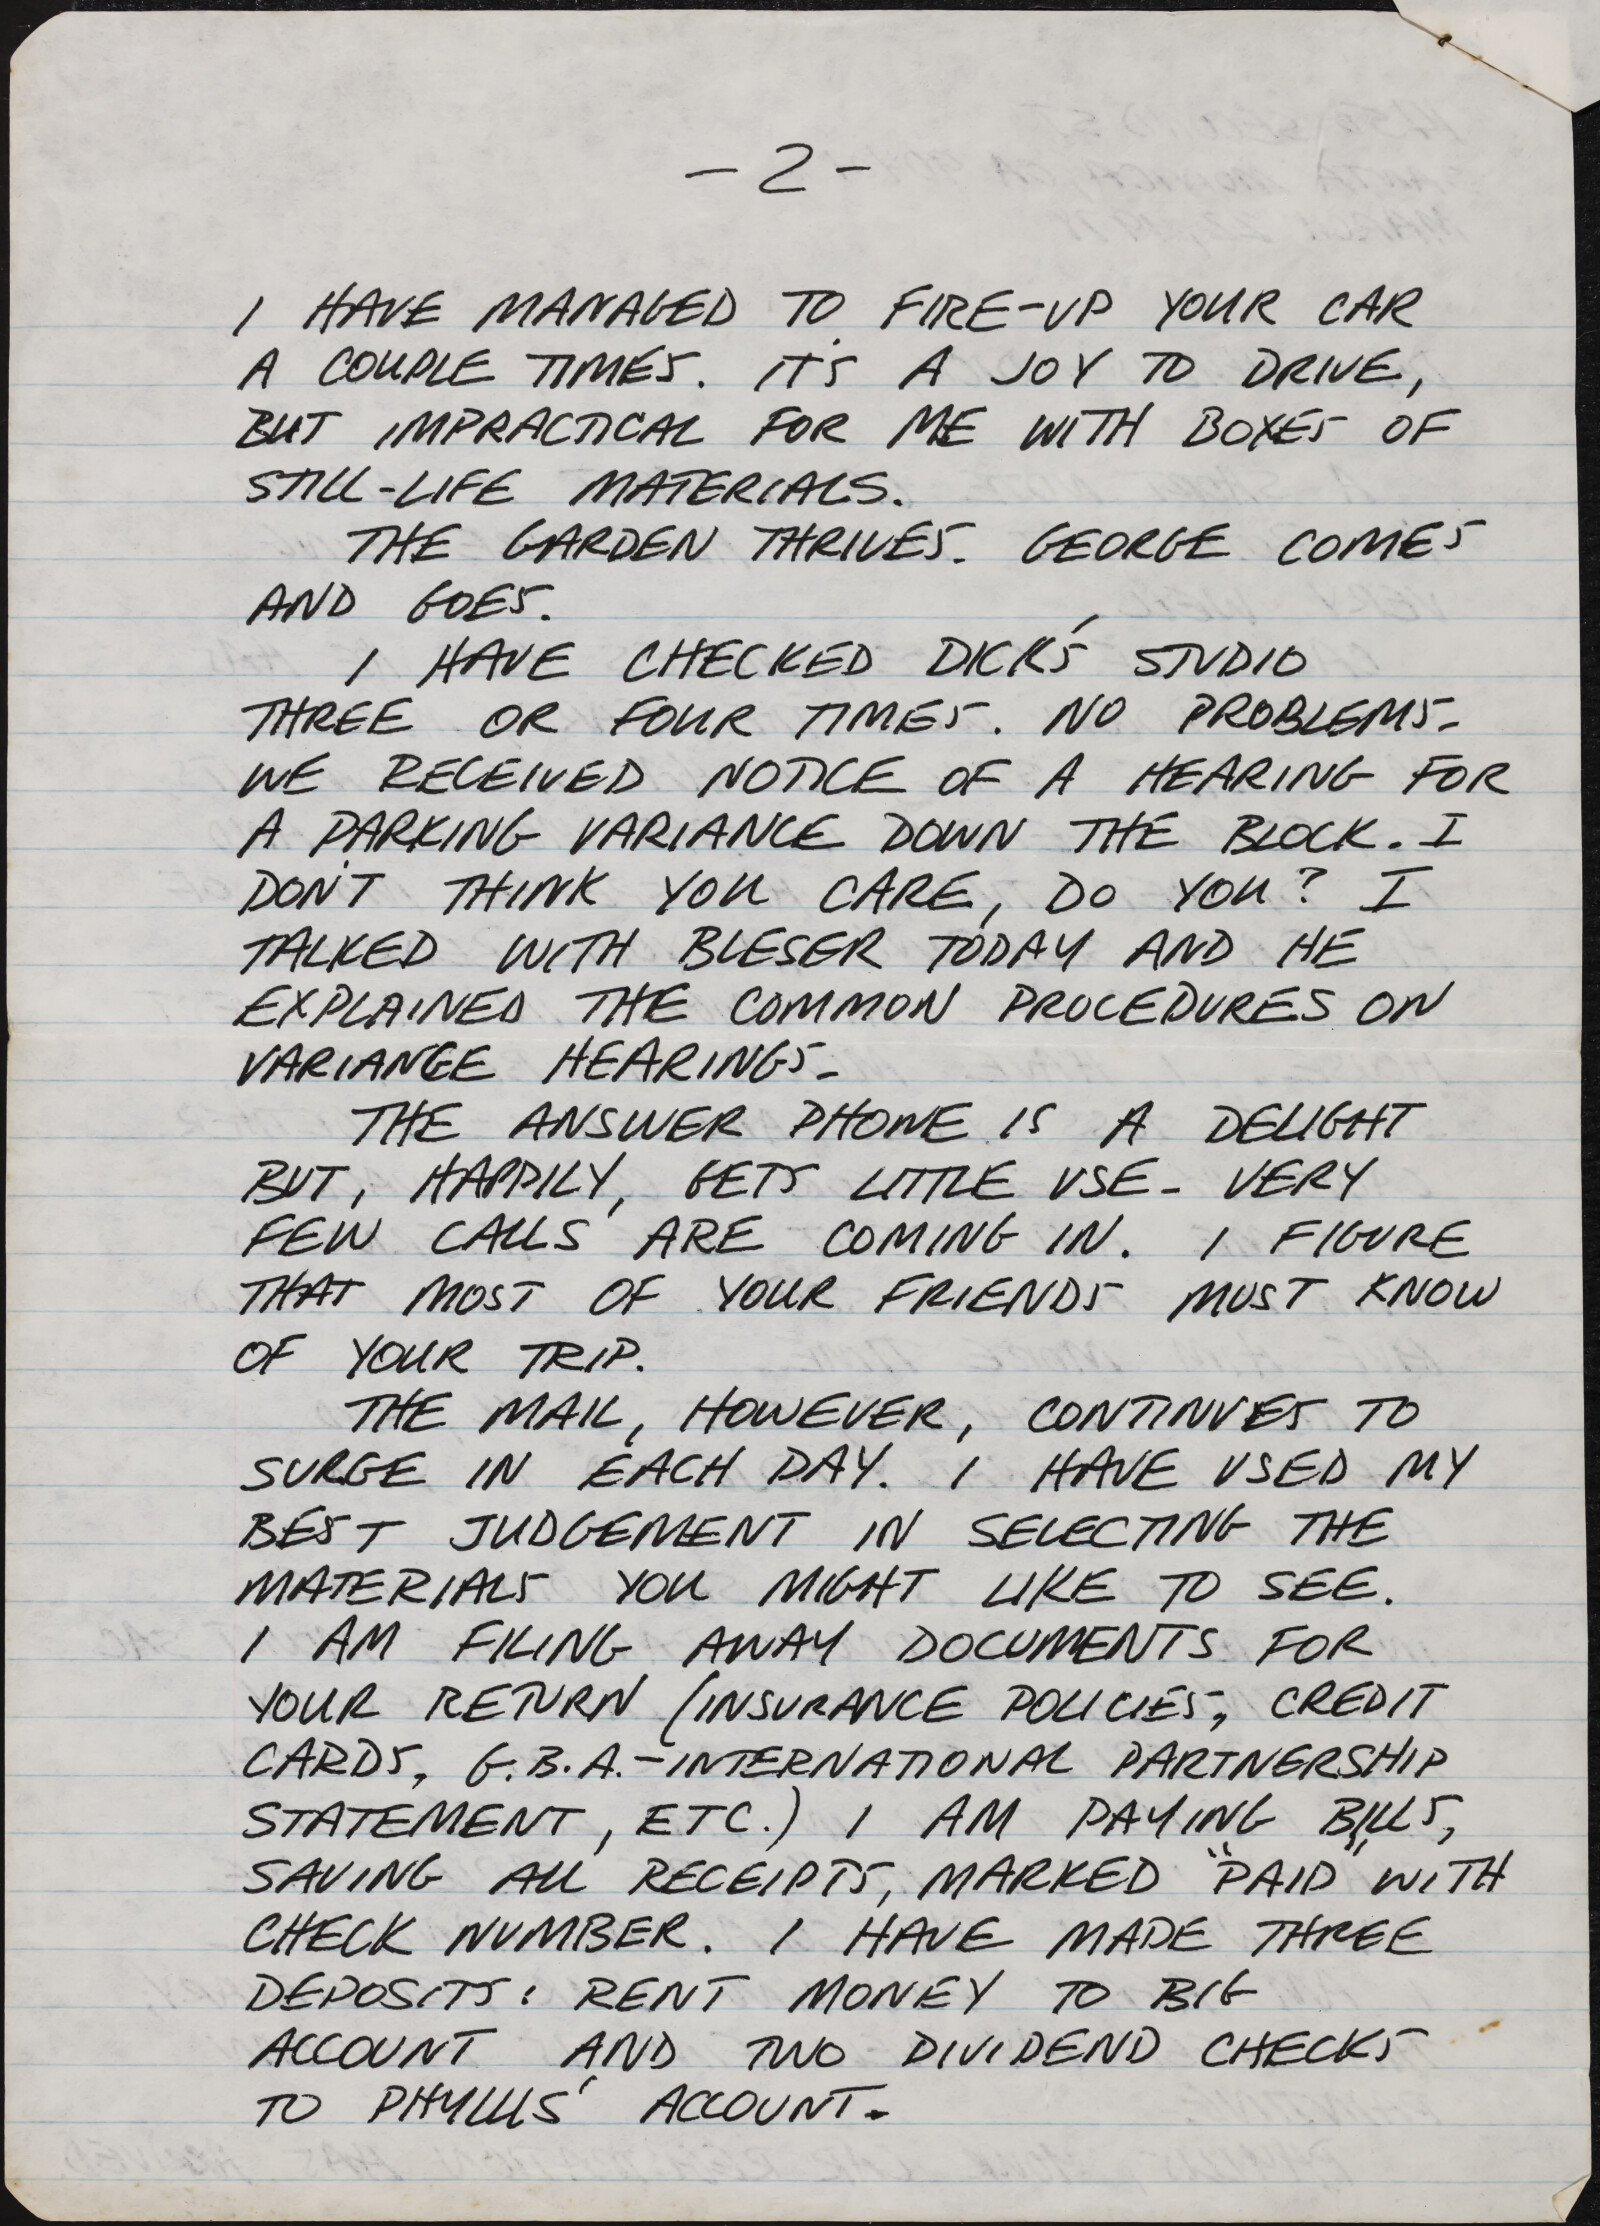 - 2 -
I HAVE MANAGED TO FIRE-UP YOUR CAR
A COUPLE TIMES. IT'S A JOY TO DRIVE,
BUT IMPRACTICAL FOR ME WITH BOXES OF
STILL-LIFE MATERIALS.
THE GARDEN THRIVES. GEORGE COMES
AND GOES.
I HAVE CHECKED DICK'S STUDIO
THREE OR FOUR TIMES. NO PROBLEMS.
WE RECEIVED NOTICE OF A HEARING FOR
A PARKING VARIANCE DOWN THE BLOCK. I
DON'T THINK YOU CARE, DO YOU? I
TALKED WITH BLESER TODAY AND HE
EXPLAINED THE COMMON PROCEDURES ON
VARIANCE HEARINGS.
THE ANSWER PHONE IS A DELIGHT
BUT, HAPPILY, GETS LITTLE USE. VERY
FEW CALLS ARE COMING IN. I FIGURE
THAT MOST OF YOUR FRIENDS MUST KNOW
OF YOUR TRIP.
THE MAIL, HOWEVER, CONTINUES TO
SURGE IN EACH DAY. I HAVE USED MY
BEST JUDGEMENT IN SELECTING THE
MATERIALS YOU MIGHT LIKE TO SEE.
I AM FILING AWAY DOCUMENTS FOR
YOUR RETURN (INSURANCE POLICIES, CREDIT
CARDS, G.B.A.-INTERNATIONAL PARTNERSHIP
STATEMENT, ETC.) I AM PAYING BILLS,
SAVING ALL RECEIPTS, MARKED "PAID" WITH
CHECK NUMBER. I HAVE MADE THREE
DEPOSITS: RENT MONEY TO BIG
ACCOUNT AND TWO DIVIDEND CHECKS
TO PHYLLIS' ACCOUNT.